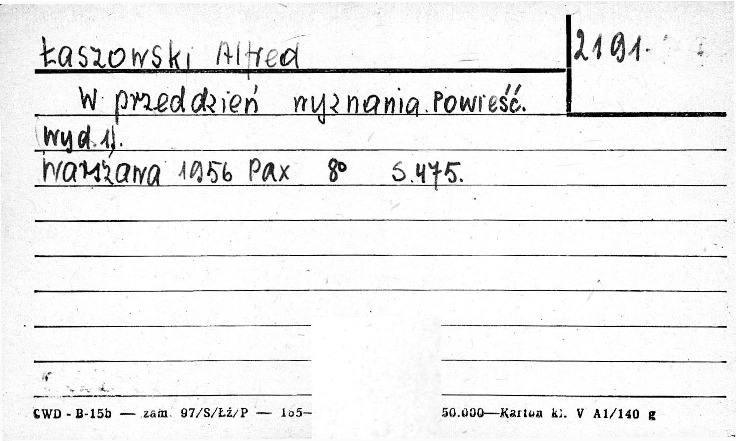 Łaszowski Alfred
2191.
W przeddzień wyznania. Powieść.
(wyd. 1).
Warszawa 1956 Pax 8° S. 475.
CWD - B-15b — zam. 97/S/Łż/P — 165— 50.000—Karton kl. V A1/140 g